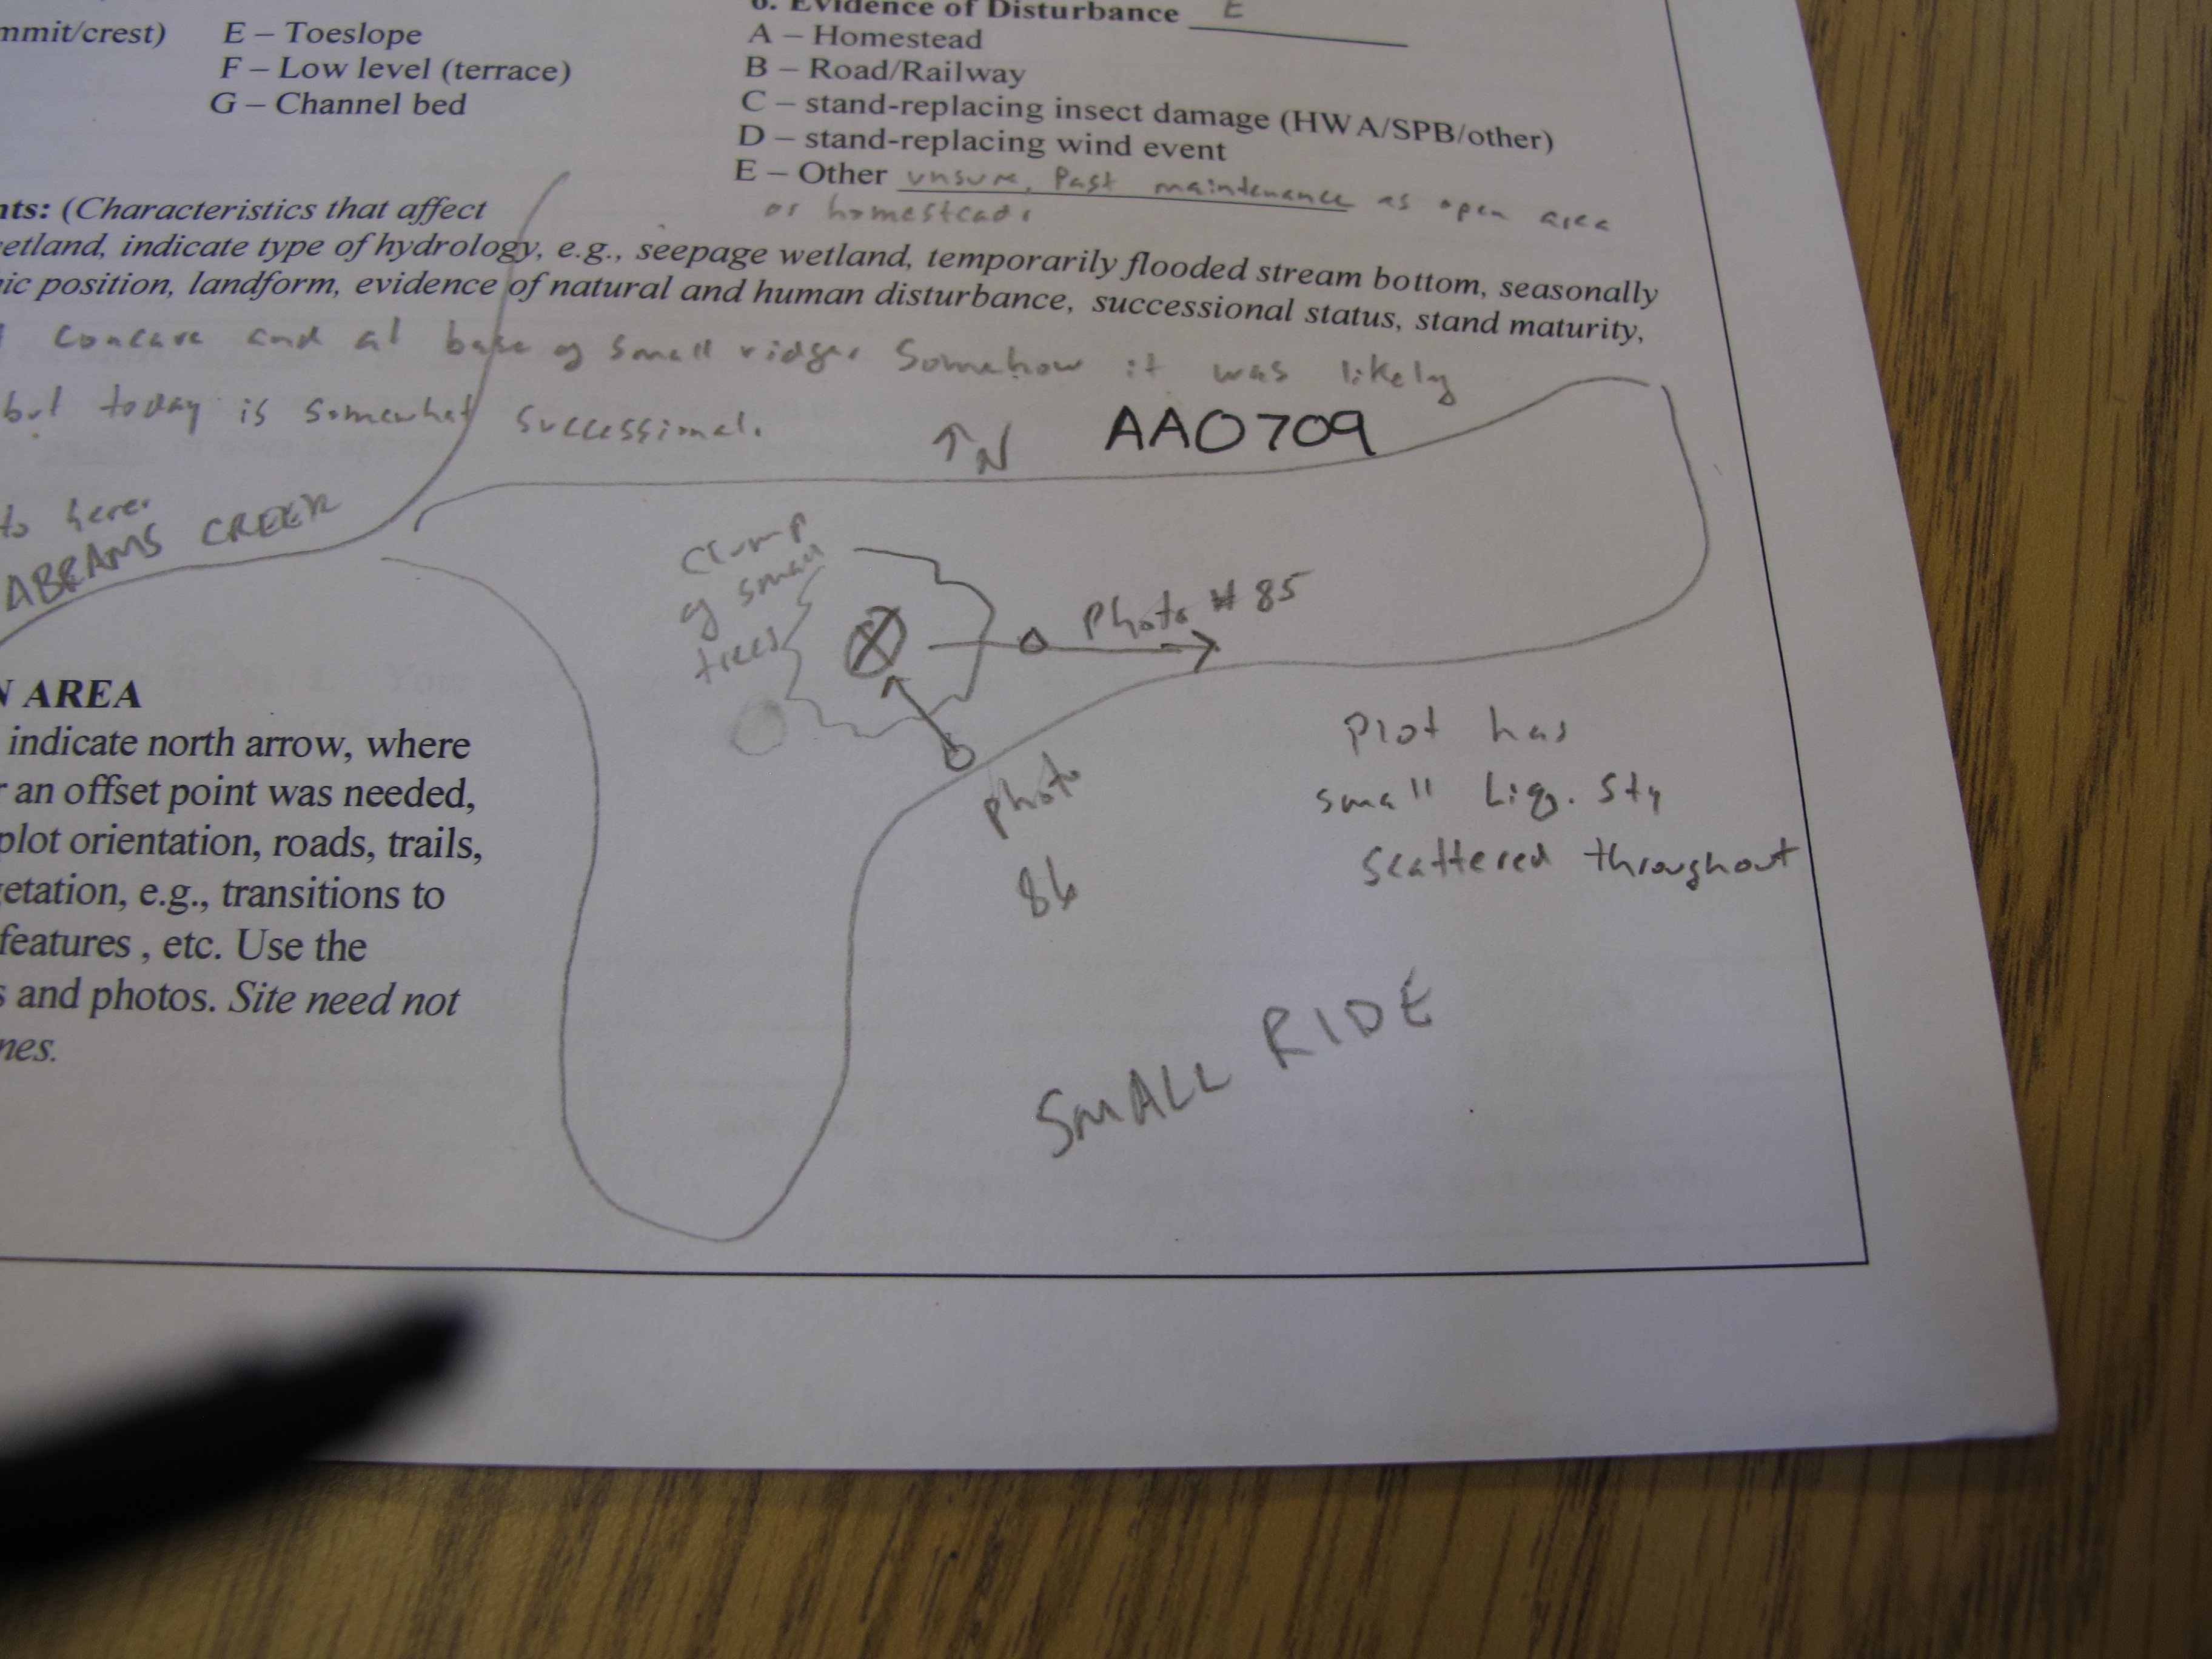 6. Evidence of Disturbance E
mmit/crest) E – Toeslope
F – Low level (terrace)
G – Channel bed
A – Homestead
B – Road/Railway
C – stand-replacing insect damage (HWA/SPB/other)
D – stand-replacing wind event
E – Other unsure, Past maintenance as open area
or homestead.
nts: (Characteristics that affect
etland, indicate type of hydrology, e.g., seepage wetland, temporarily flooded stream bottom, seasonally
ic position, landform, evidence of natural and human disturbance, successional status, stand maturity,
concave and at base of small ridge. Somehow it was likely
but today is somewhat successional.
↑N AAO709
to here.
ABRAMS CREEK
Clump
of small
trees
Photo # 85
photo
86
Plot has
small Liq. Sty
scattered throughout
SMALL RIDE
N AREA
indicate north arrow, where
r an offset point was needed,
plot orientation, roads, trails,
getation, e.g., transitions to
features , etc. Use the
s and photos. Site need not
nes.